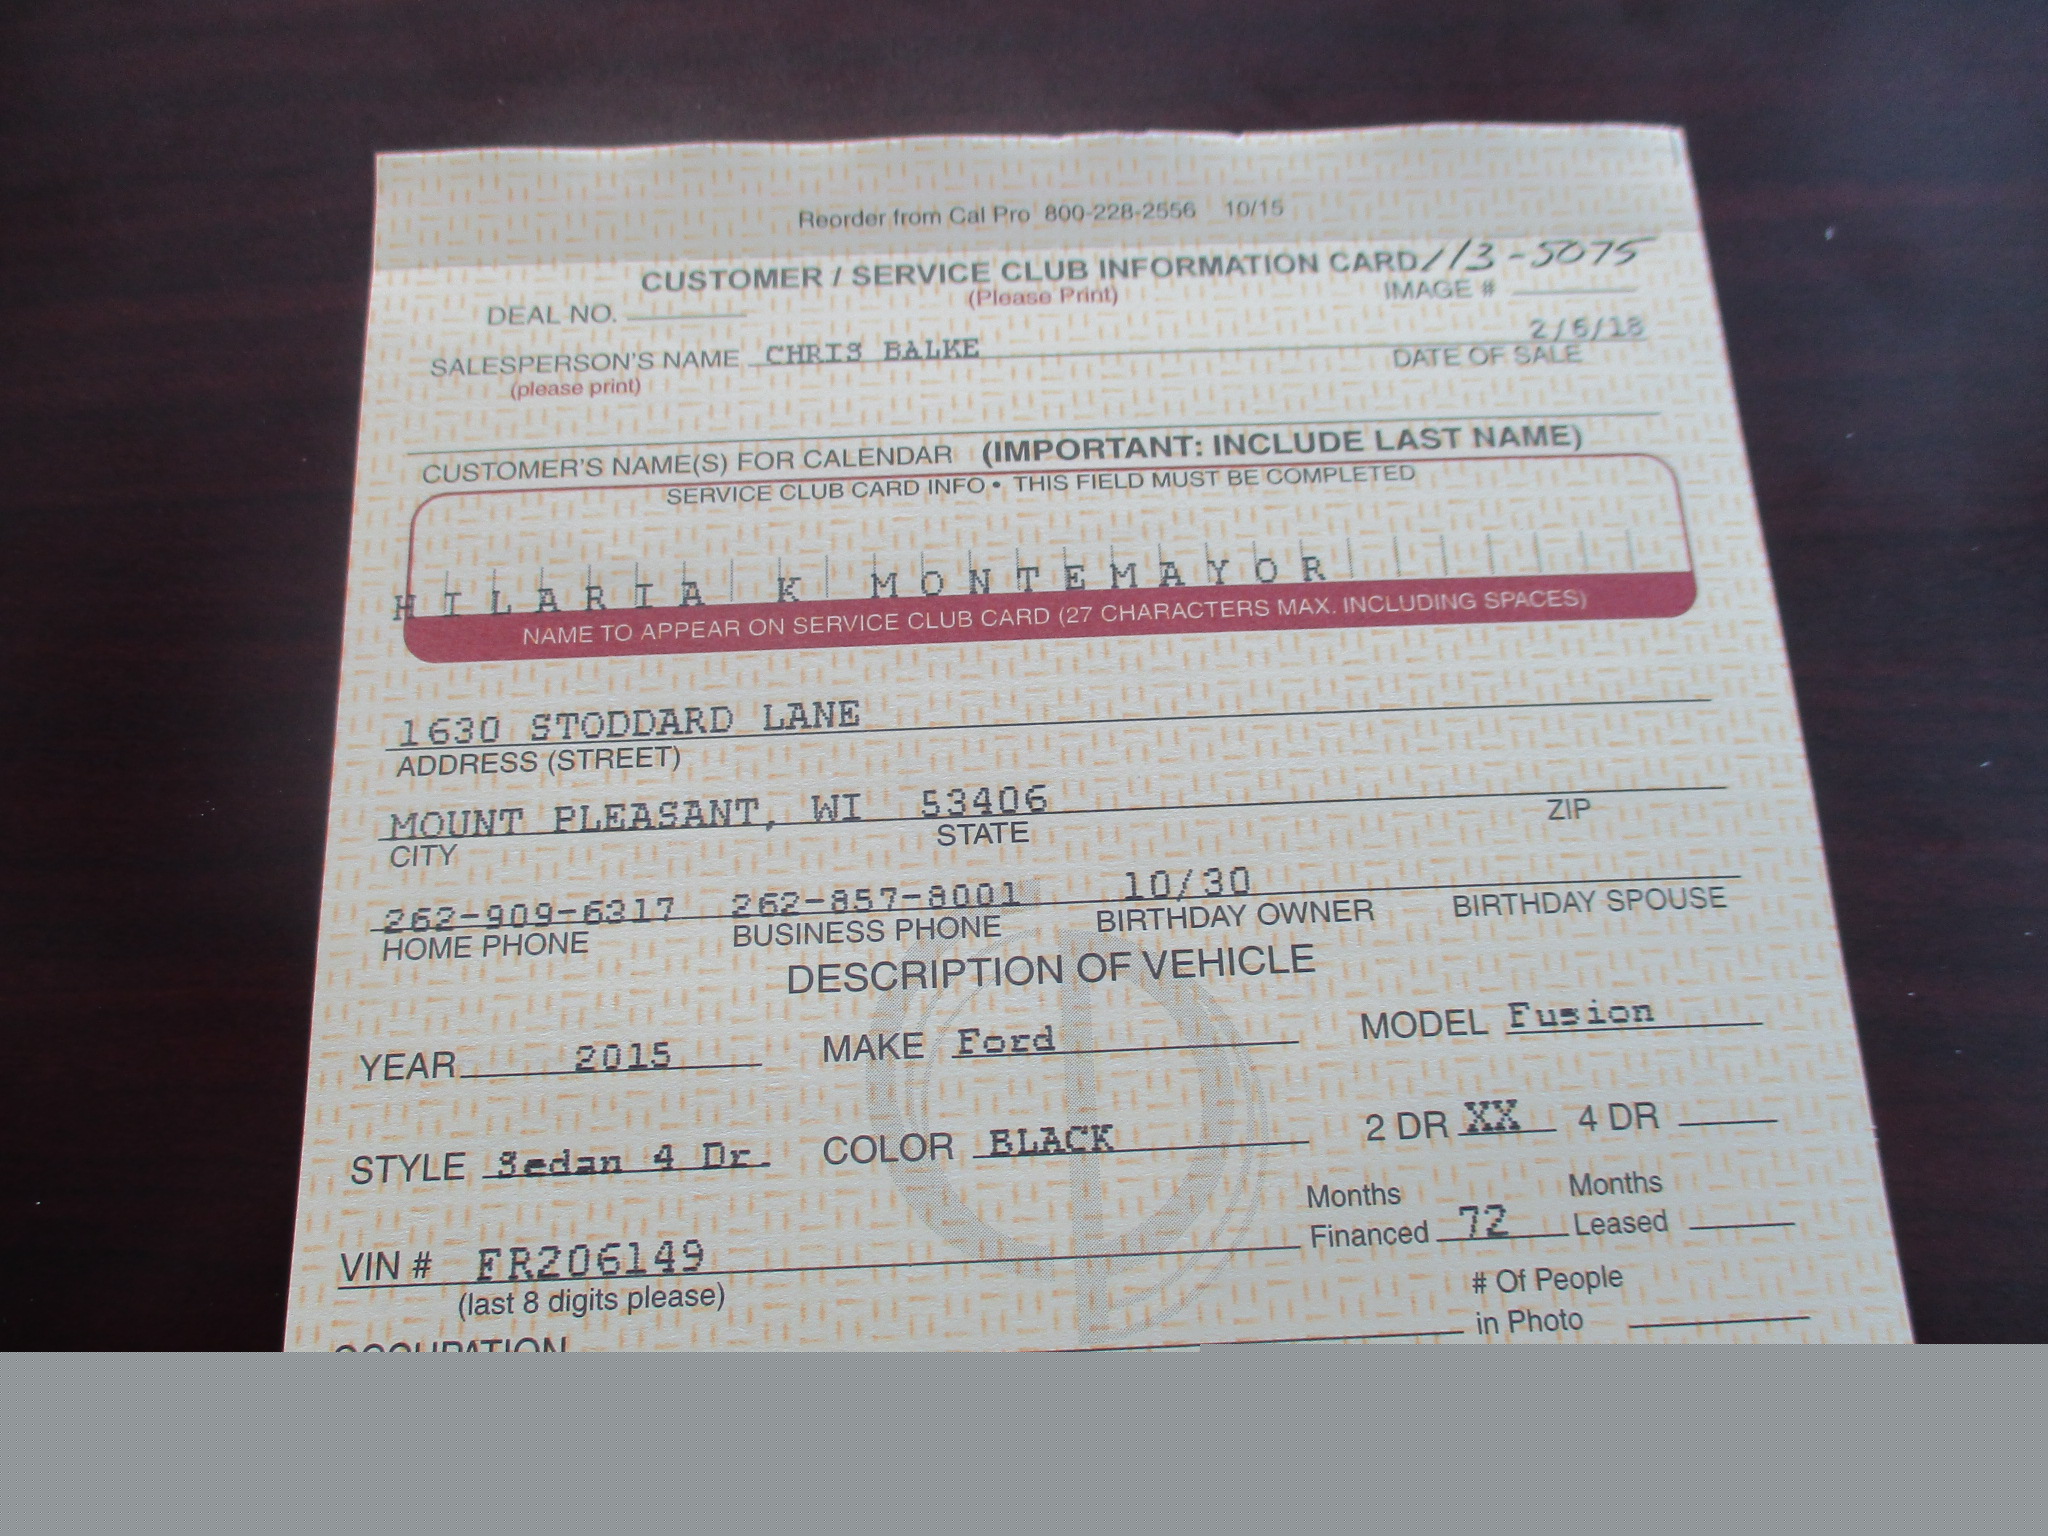 Reorder from Cal Pro 800-228-2556 10/15
CUSTOMER / SERVICE CLUB INFORMATION CARD 113-5075
(Please Print)
DEAL NO. IMAGE #
2/6/18
SALESPERSON'S NAME CHRIS BALKE DATE OF SALE
(please print)
CUSTOMER'S NAME(S) FOR CALENDAR (IMPORTANT: INCLUDE LAST NAME)
SERVICE CLUB CARD INFO • THIS FIELD MUST BE COMPLETED
HILARIA K MONTEMAYOR
NAME TO APPEAR ON SERVICE CLUB CARD (27 CHARACTERS MAX. INCLUDING SPACES)
1630 STODDARD LANE
ADDRESS (STREET)
MOUNT PLEASANT, WI 53406
CITY STATE ZIP
262-909-6317 262-857-8001 10/30
HOME PHONE BUSINESS PHONE BIRTHDAY OWNER BIRTHDAY SPOUSE
DESCRIPTION OF VEHICLE
YEAR 2015 MAKE Ford MODEL Fusion
STYLE Sedan 4 Dr. COLOR BLACK 2 DR XX 4 DR
Months Months
Financed 72 Leased
VIN # FR206149
(last 8 digits please)
# Of People
in Photo
OCCUPATION